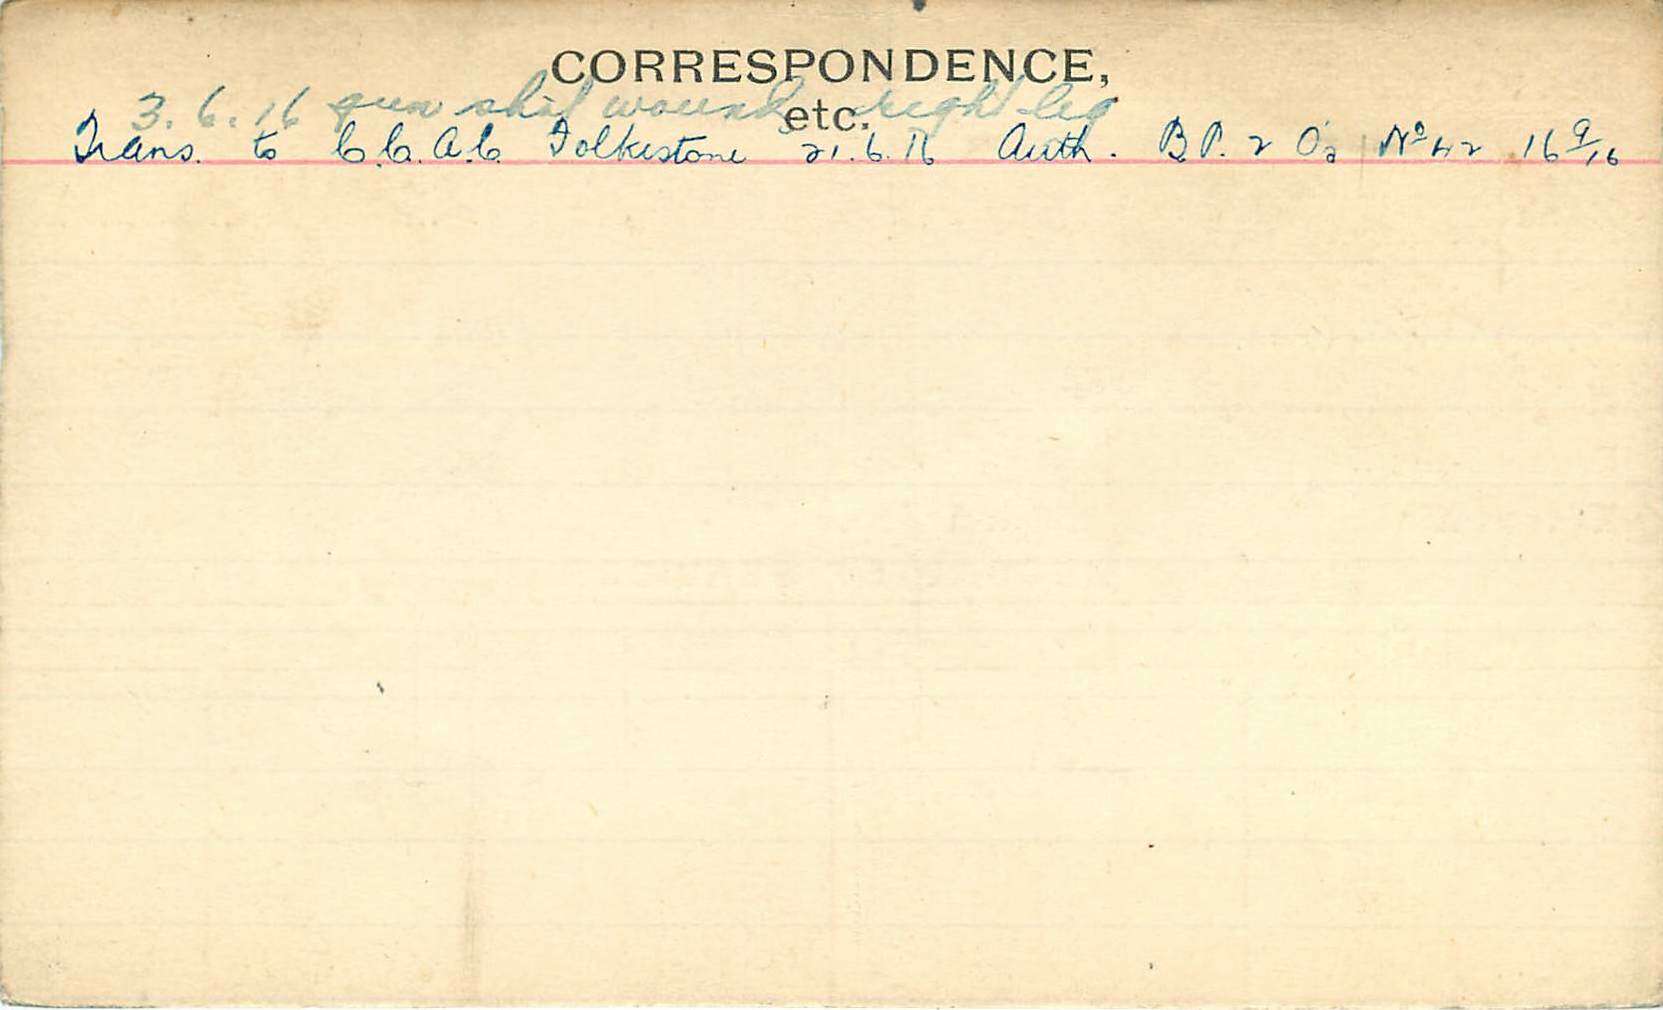 CORRESPONDENCE,
etc.
3.6.16 gun shot wound right leg
Trans. to C.C.A.C. Folkestone 21.6.16 Auth. B.P. 2 Os No 42 16 9/16